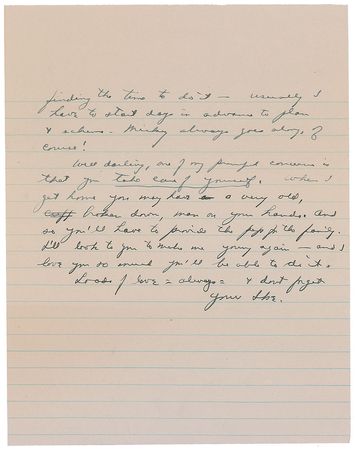 finding the time to do it — usually I
have to start days in advance to plan
& scheme. Mickey always goes along, of
course!
Well darling, one of my principal concerns is
that you take care of yourself. When I
get home you may have a very old,
broken down, man on your hands. And
so you'll have to provide the pep for the family.
I'll look to you to make me young again — and I
love you so much you'll be able to do it.
Loads of love – always – & don't forget
Your Ike.